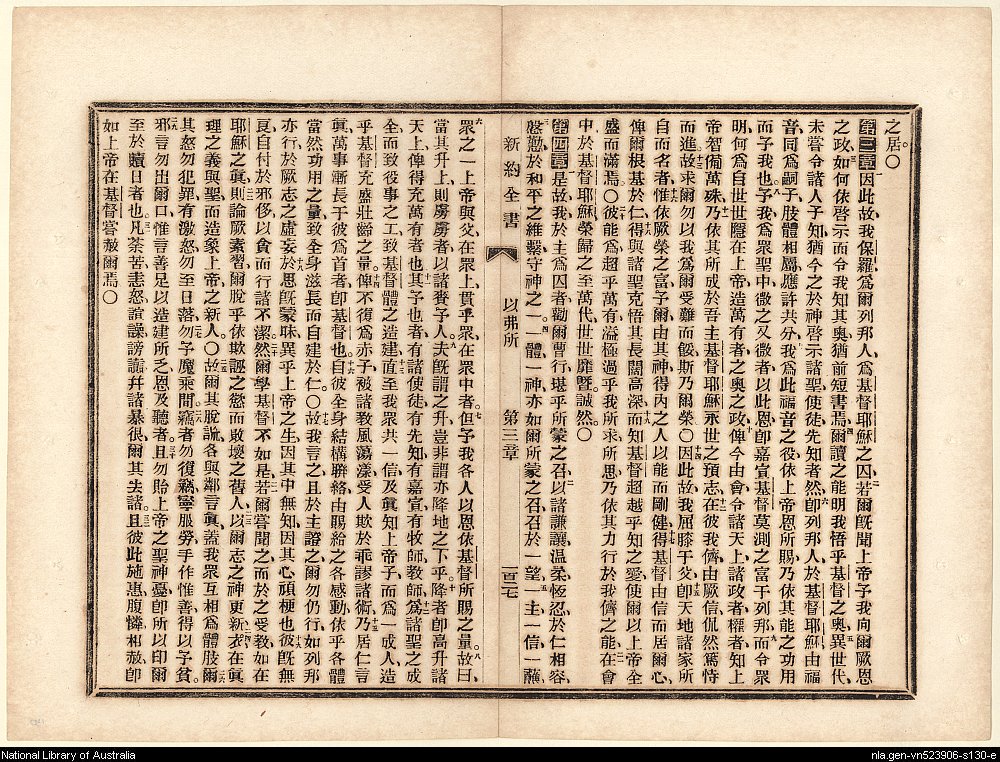 之居○
第三章因此故我保羅爲爾列邦人爲基督耶穌之囚若爾旣聞上帝予我向爾厥恩
之政如何依啓示而令我知其奧猶前短書焉爾讀之能明我悟乎基督之奧異世代
未嘗令諸人子知猶今之於神啓示諸聖使徒先知者然卽列邦人於基督耶穌由福
音同爲嗣子肢體相屬應許共分我爲此福音之役依上帝恩所賜乃依其能之功用
而予我也予我爲衆聖中微之又微者以此恩卽嘉宣基督莫測之富于列邦而令衆
明何爲自世世隱在上帝造萬有者之奧之政俾今由會令諸天上諸政者權者知上
帝智備萬殊乃依其所成於吾主基督耶穌永世之預志在彼我儕由厥信侃然篤恃
而進故求爾勿以我爲爾受難而餒斯乃爾榮○因此故我屈膝于父卽天地諸家所
自而名者惟依厥榮之富予爾由其神得內之人以能而剛健得基督由信而居爾心
俾爾根基於仁得與諸聖克悟其長闊高深而知基督超越乎知之愛使爾以上帝全
盛而滿焉○彼能爲超乎萬有溢極過乎我所求所思乃依其力行於我儕之能在會
中於基督耶穌榮歸之至萬代世世靡曁誠然○
第四章是故我於主爲囚者勸爾曹行堪乎所蒙之召以諸謙讓温柔恆忍於仁相容
慇懃於和平之維繫守神之一一體一神亦如爾所蒙之召召於一望一主一信一蘸
新約全書
以弗所
第三章
一百二七
衆之一上帝與父在衆上貫乎衆在衆中者但予我各人以恩依基督所賜之量故曰
當其升上則虜虜者以諸賚予人夫旣謂之升豈非謂亦降地之下乎降者卽高升諸
天上俾得充萬有者也其予也者有諸使徒有先知有嘉宣有牧師教師爲諸聖之成
全而致役事之工致基督體之造建直至我衆共一信及眞知上帝子而爲一成人造
乎基督充盛壯齡之量俾不復爲赤子被諸教風蕩漾受人欺於乖謬諸術乃居仁言
眞萬事漸長于彼爲首者卽基督也自彼全身結構聯絡由賜給之各感動依乎各體
當然功用之量致全身滋長而自建於仁○故我言之且於主證之爾勿仍行如列邦
亦行於厥志之虛妄於思旣蒙味異乎上帝之生因其中無知因其心頑梗也彼旣無
良自付於邪侈以食而行諸不潔然爾學基督不如是若爾嘗聞之而於之受教如在
耶穌之眞則論厥素習爾脫乎依欺誣之慾而敗壞之舊人以爾志之神更新衣在眞
理之義與聖而造象上帝之新人○故爾其脫詭各與鄰言眞蓋我衆互相爲體肢爾
其怒勿犯罪有激怒勿至日落勿予魔乘間竊者勿復竊寧服勞手作惟善得以予貧
邪言勿出爾口惟言善足以造建所乏恩及聽者且勿貽上帝之聖神憂卽所以印爾
至於贖日者也凡荼苦恚怒諠譟謗讟幷諸暴很爾其去諸且彼此施惠腹憐相赦卽
如上帝在基督嘗赦爾焉○
National Library of Australia
nla.gen-vn523906-s130-e